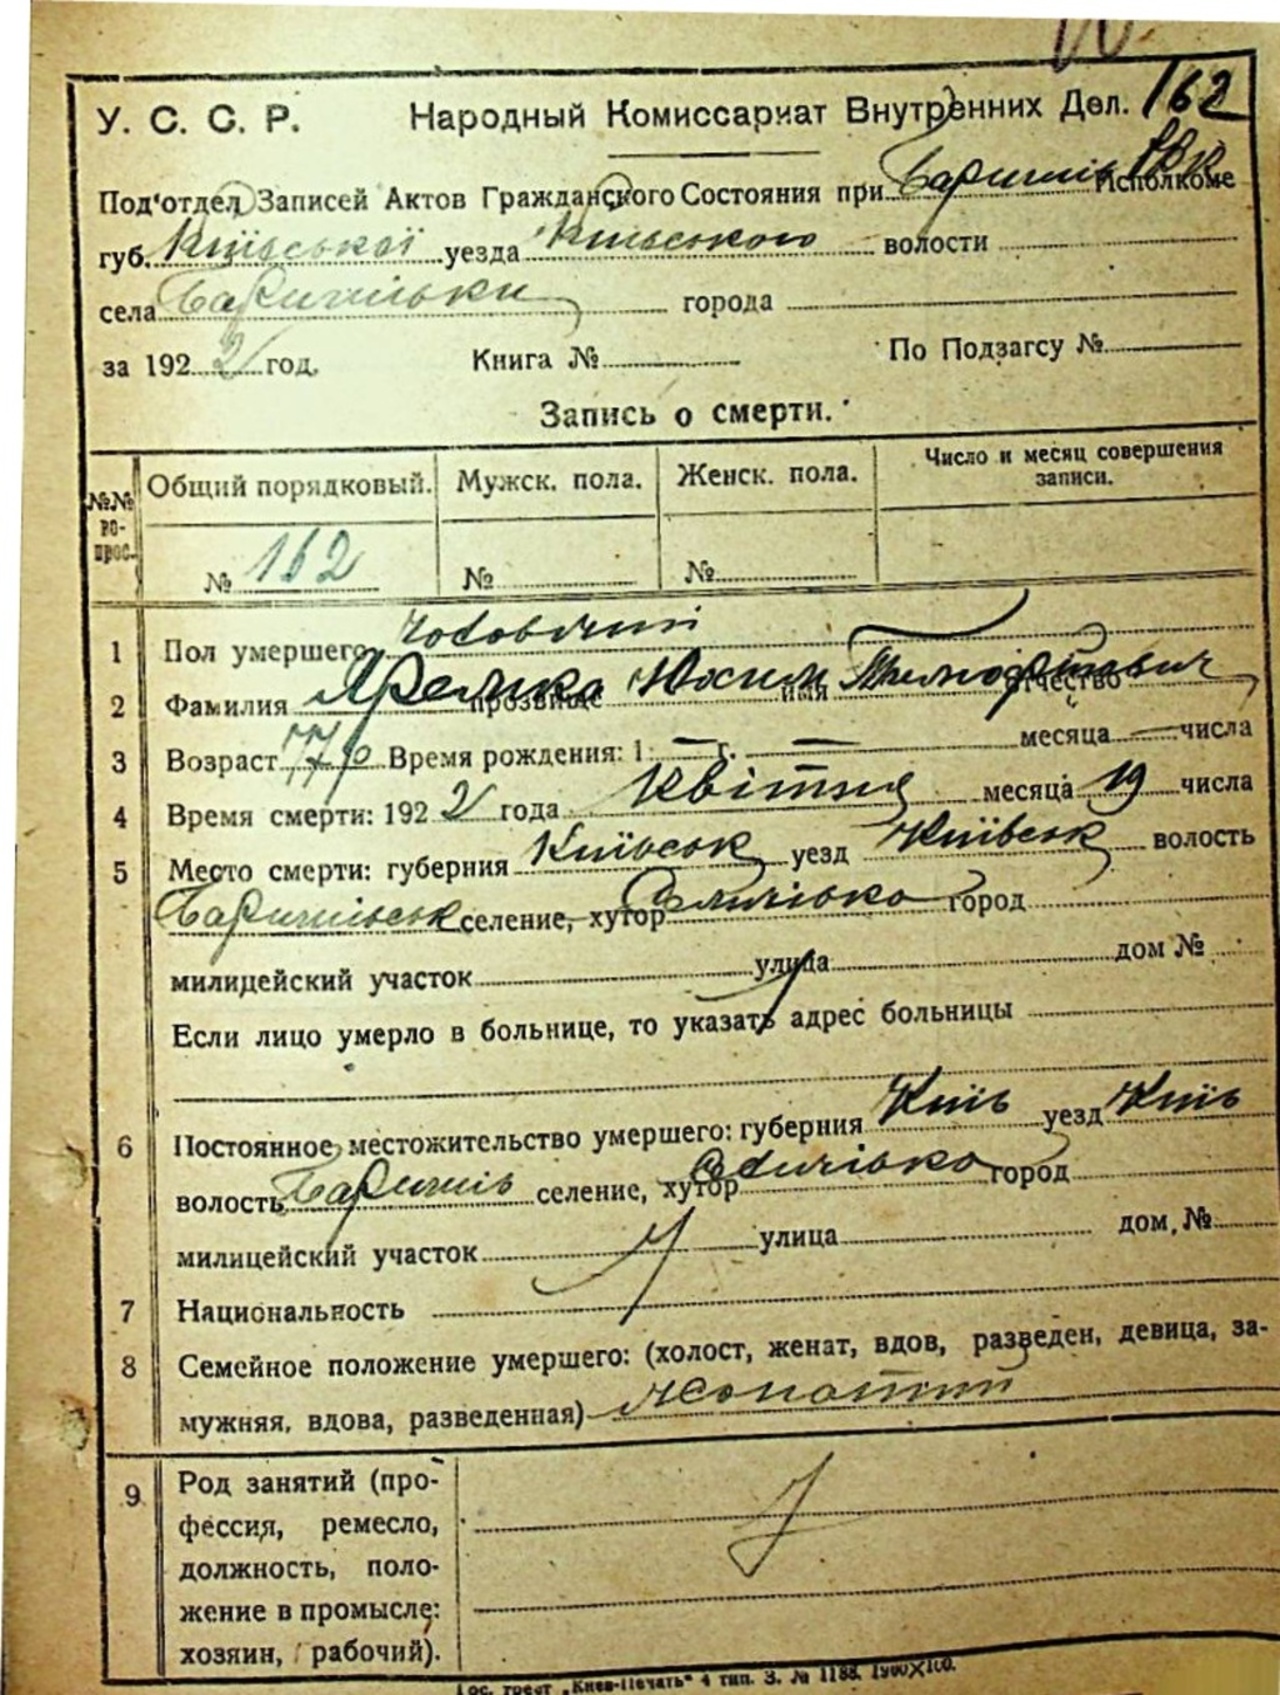 162
У. С. С. Р. Народный Комиссариат Внутренних Дел.
Под'отдел Записей Актов Гражданского Состояния при Баришів РВК Исполкоме
губ. Київської уезда Київського волости
села Баришівки города
за 1922 год. Книга № По Подзагсу №
Запись о смерти.
№№ во-прос. Общий порядковый. Мужск. пола. Женск. пола. Число и месяц совершения записи.
№ 162 № №
1 Пол умершего чоловічий
2 Фамилия прозвище Юхим имя Тимофієвич отчество
3 Возраст 77 р Время рождения: 1 — г. — месяца — числа
4 Время смерти: 1922 года Квітня месяца 19 числа
5 Место смерти: губерния Київськ уезд Київськ волость
Баришівськ селение, хутор город
милицейский участок улица дом №
Если лицо умерло в больнице, то указать адрес больницы
6 Постоянное местожительство умершего: губерния Київ уезд Київ
волость Баришів селение, хутор город
милицейский участок улица дом, №
7 Национальность
8 Семейное положение умершего: (холост, женат, вдов, разведен, девица, за-
мужняя, вдова, разведенная)
9 Род занятий (про-
фессия, ремесло,
должность, поло-
жение в промысле:
хозяин, рабочий).
Гос. трест „Киев-Печать“ 4 тип. З. № 1188. 1900×100.